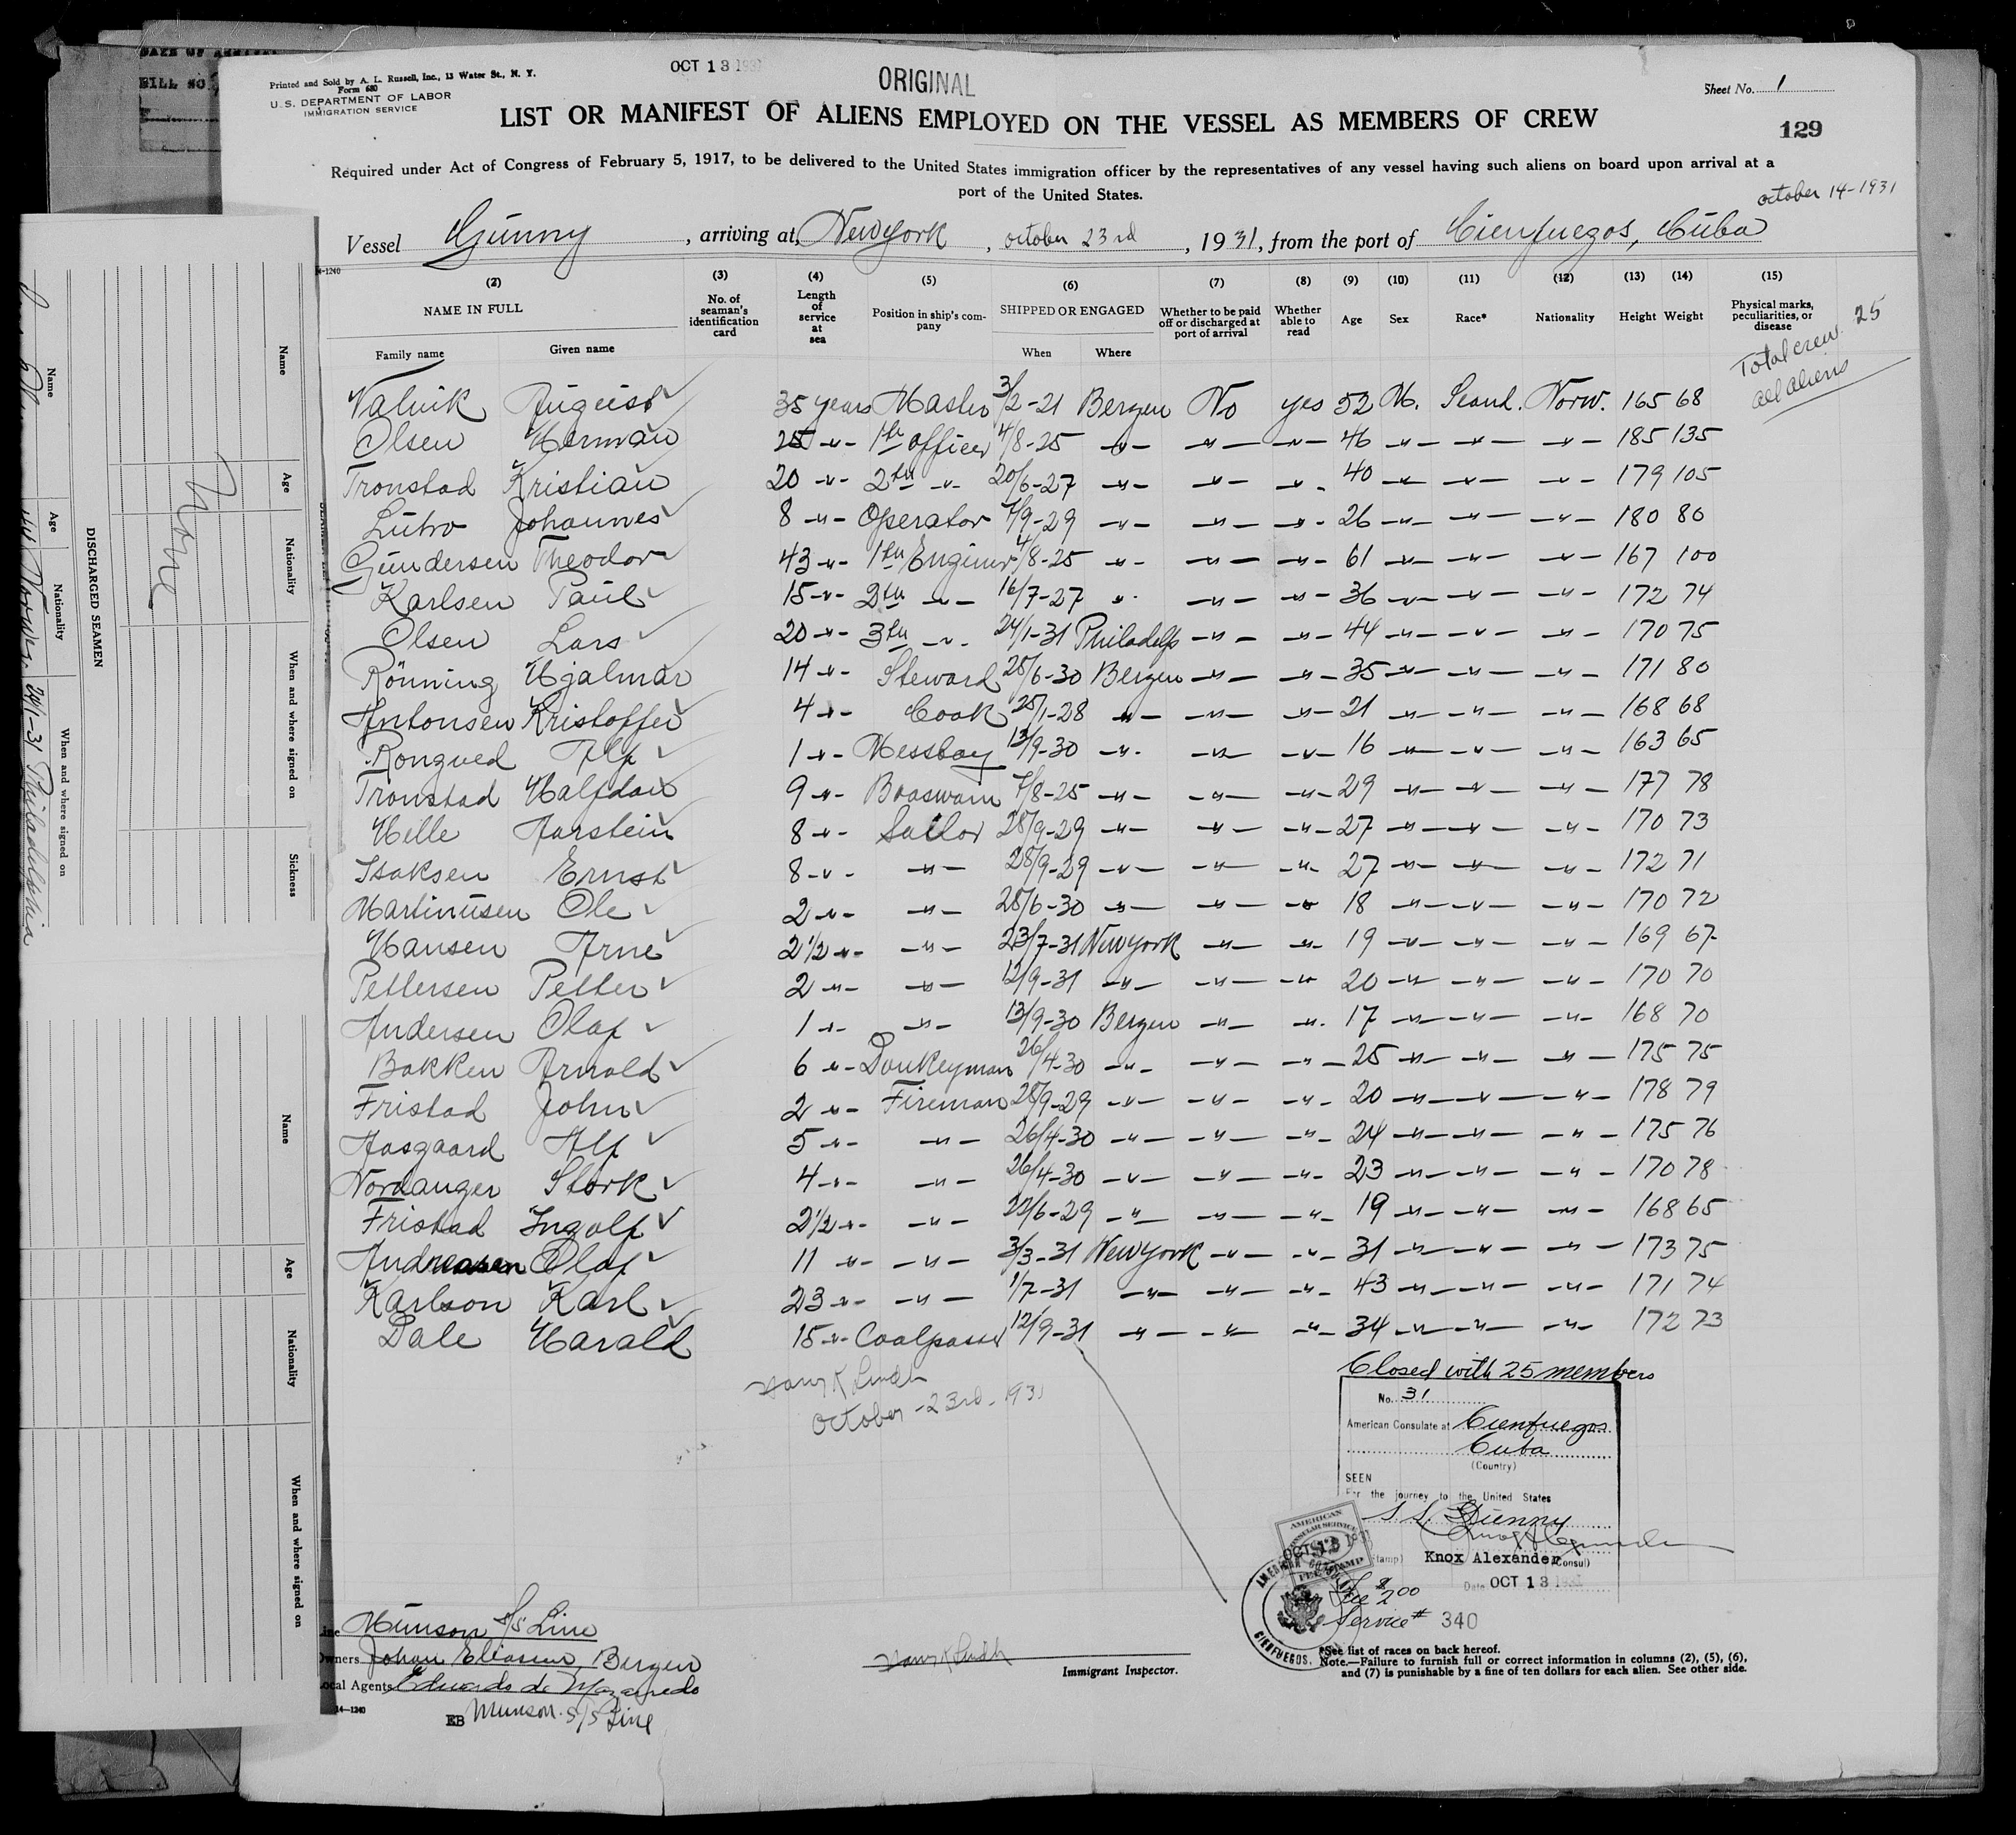 DATE OF
BILL NO.
Printed and Sold by A. L. Russell, Inc., 13 Water St., N. Y.
Form 680
U. S. DEPARTMENT OF LABOR
IMMIGRATION SERVICE
OCT 13 1931
ORIGINAL
Sheet No. 1
LIST OR MANIFEST OF ALIENS EMPLOYED ON THE VESSEL AS MEMBERS OF CREW
129
Required under Act of Congress of February 5, 1917, to be delivered to the United States immigration officer by the representatives of any vessel having such aliens on board upon arrival at a
port of the United States.
october 14-1931
Vessel Gunny, arriving at, New York, october 23rd, 1931, from the port of Cienfuegos, Cuba
14-1240
(2) (3) (4) (5) (6) (7) (8) (9) (10) (11) (12) (13) (14) (15)
NAME IN FULL
Family name Given name
No. of seaman's identification card
Length of service at sea
Position in ship's company
SHIPPED OR ENGAGED
When Where
Whether to be paid off or discharged at port of arrival
Whether able to read
Age Sex Race* Nationality Height Weight
Physical marks, peculiarities, or disease
Total crew. 25
all aliens
Valvik August 35 years Master 3/2-21 Bergen No yes 52 M. Scand. Norw. 165 68
Olsen Herman 25 -"- 1te officer 4/8-25 -"- -"- -"- 46 -"- -"- -"- 185 135
Tronstad Kristian 20 -"- 2te -"- 20/6-27 -"- -"- -"- 40 -"- -"- -"- 179 105
Lutro Johannes 8 -"- Operator 7/9-29 -"- -"- -"- 26 -"- -"- -"- 180 80
Gundersen Theodor 43 -"- 1te Enginer 4/8-25 -"- -"- -"- 61 -"- -"- -"- 167 100
Karlsen Paul 15 -"- 2te -"- 16/7-27 -"- -"- -"- 36 -"- -"- -"- 172 74
Olsen Lars 20 -"- 3te -"- 24/1-31 Philadelp -"- -"- 44 -"- -"- -"- 170 75
Rönning Hjalmar 14 -"- Steward 28/6-30 Bergen -"- -"- 35 -"- -"- -"- 171 80
Antonsen Kristoffer 4 -"- Cook 25/1-28 -"- -"- -"- 21 -"- -"- -"- 168 68
Rongved Alf 1 -"- Messboy 13/9-30 -"- -"- -"- 16 -"- -"- -"- 163 65
Tronstad Halfdan 9 -"- Boaswain 7/8-25 -"- -"- -"- 29 -"- -"- -"- 177 78
Helle Aarstein 8 -"- Sailor 28/9-29 -"- -"- -"- 27 -"- -"- -"- 170 73
Isaksen Ernst 8 -"- -"- 28/9-29 -"- -"- -"- 27 -"- -"- -"- 172 71
Martinusen Ole 2 -"- -"- 28/6-30 -"- -"- -"- 18 -"- -"- -"- 170 72
Hansen Arne 2 1/2 -"- -"- 23/7-31 New York -"- -"- 19 -"- -"- -"- 169 67
Pettersen Petter 2 -"- -"- 12/9-31 -"- -"- -"- 20 -"- -"- -"- 170 70
Andersen Olaf 1 -"- -"- 13/9-30 Bergen -"- -"- 17 -"- -"- -"- 168 70
Bakken Arnold 6 -"- Donkeyman 26/4-30 -"- -"- -"- 25 -"- -"- -"- 175 75
Fristad John 2 -"- Fireman 28/9-29 -"- -"- -"- 20 -"- -"- -"- 178 79
Aasgaard Alf 5 -"- -"- 26/4-30 -"- -"- -"- 24 -"- -"- -"- 175 76
Nordanger Stork 4 -"- -"- 26/4-30 -"- -"- -"- 23 -"- -"- -"- 170 78
Fristad Ingolf 2 1/2 -"- -"- 22/6-29 -"- -"- -"- 19 -"- -"- -"- 168 65
Andreasen Olaf 11 -"- -"- 3/3-31 New York -"- -"- 31 -"- -"- -"- 173 75
Karlson Karl 23 -"- -"- 1/7-31 -"- -"- -"- 43 -"- -"- -"- 171 74
Dale Harald 15 -"- Coalpasser 12/9-31 -"- -"- -"- 34 -"- -"- -"- 172 73
October -23rd-1931
Closed with 25 members
No. 31
American Consulate at Cienfuegos
Cuba
(Country)
SEEN
For the journey to the United States
S.S. Gunny
Knox Alexander Consul)
Date OCT 13 1931
AMERICAN CONSULAR SERVICE
FEE STAMP
OCT 13 1931
Fee $2.00
Service # 340
CIENFUEGOS.
Line Munson S/S Line
Owners Johan Eliasen, Bergen
Local Agents Eduardo de Mazarredo
14-1240
EB Munson S/S Line
Immigrant Inspector.
*See list of races on back hereof.
Note.—Failure to furnish full or correct information in columns (2), (5), (6),
and (7) is punishable by a fine of ten dollars for each alien. See other side.
DISCHARGED SEAMEN
Name Age Nationality When and where signed on Sickness
None
Name Age Nationality When and where signed on
44 Norweg. 24/1-31 Philadelphia
Name Age Nationality When and where signed on